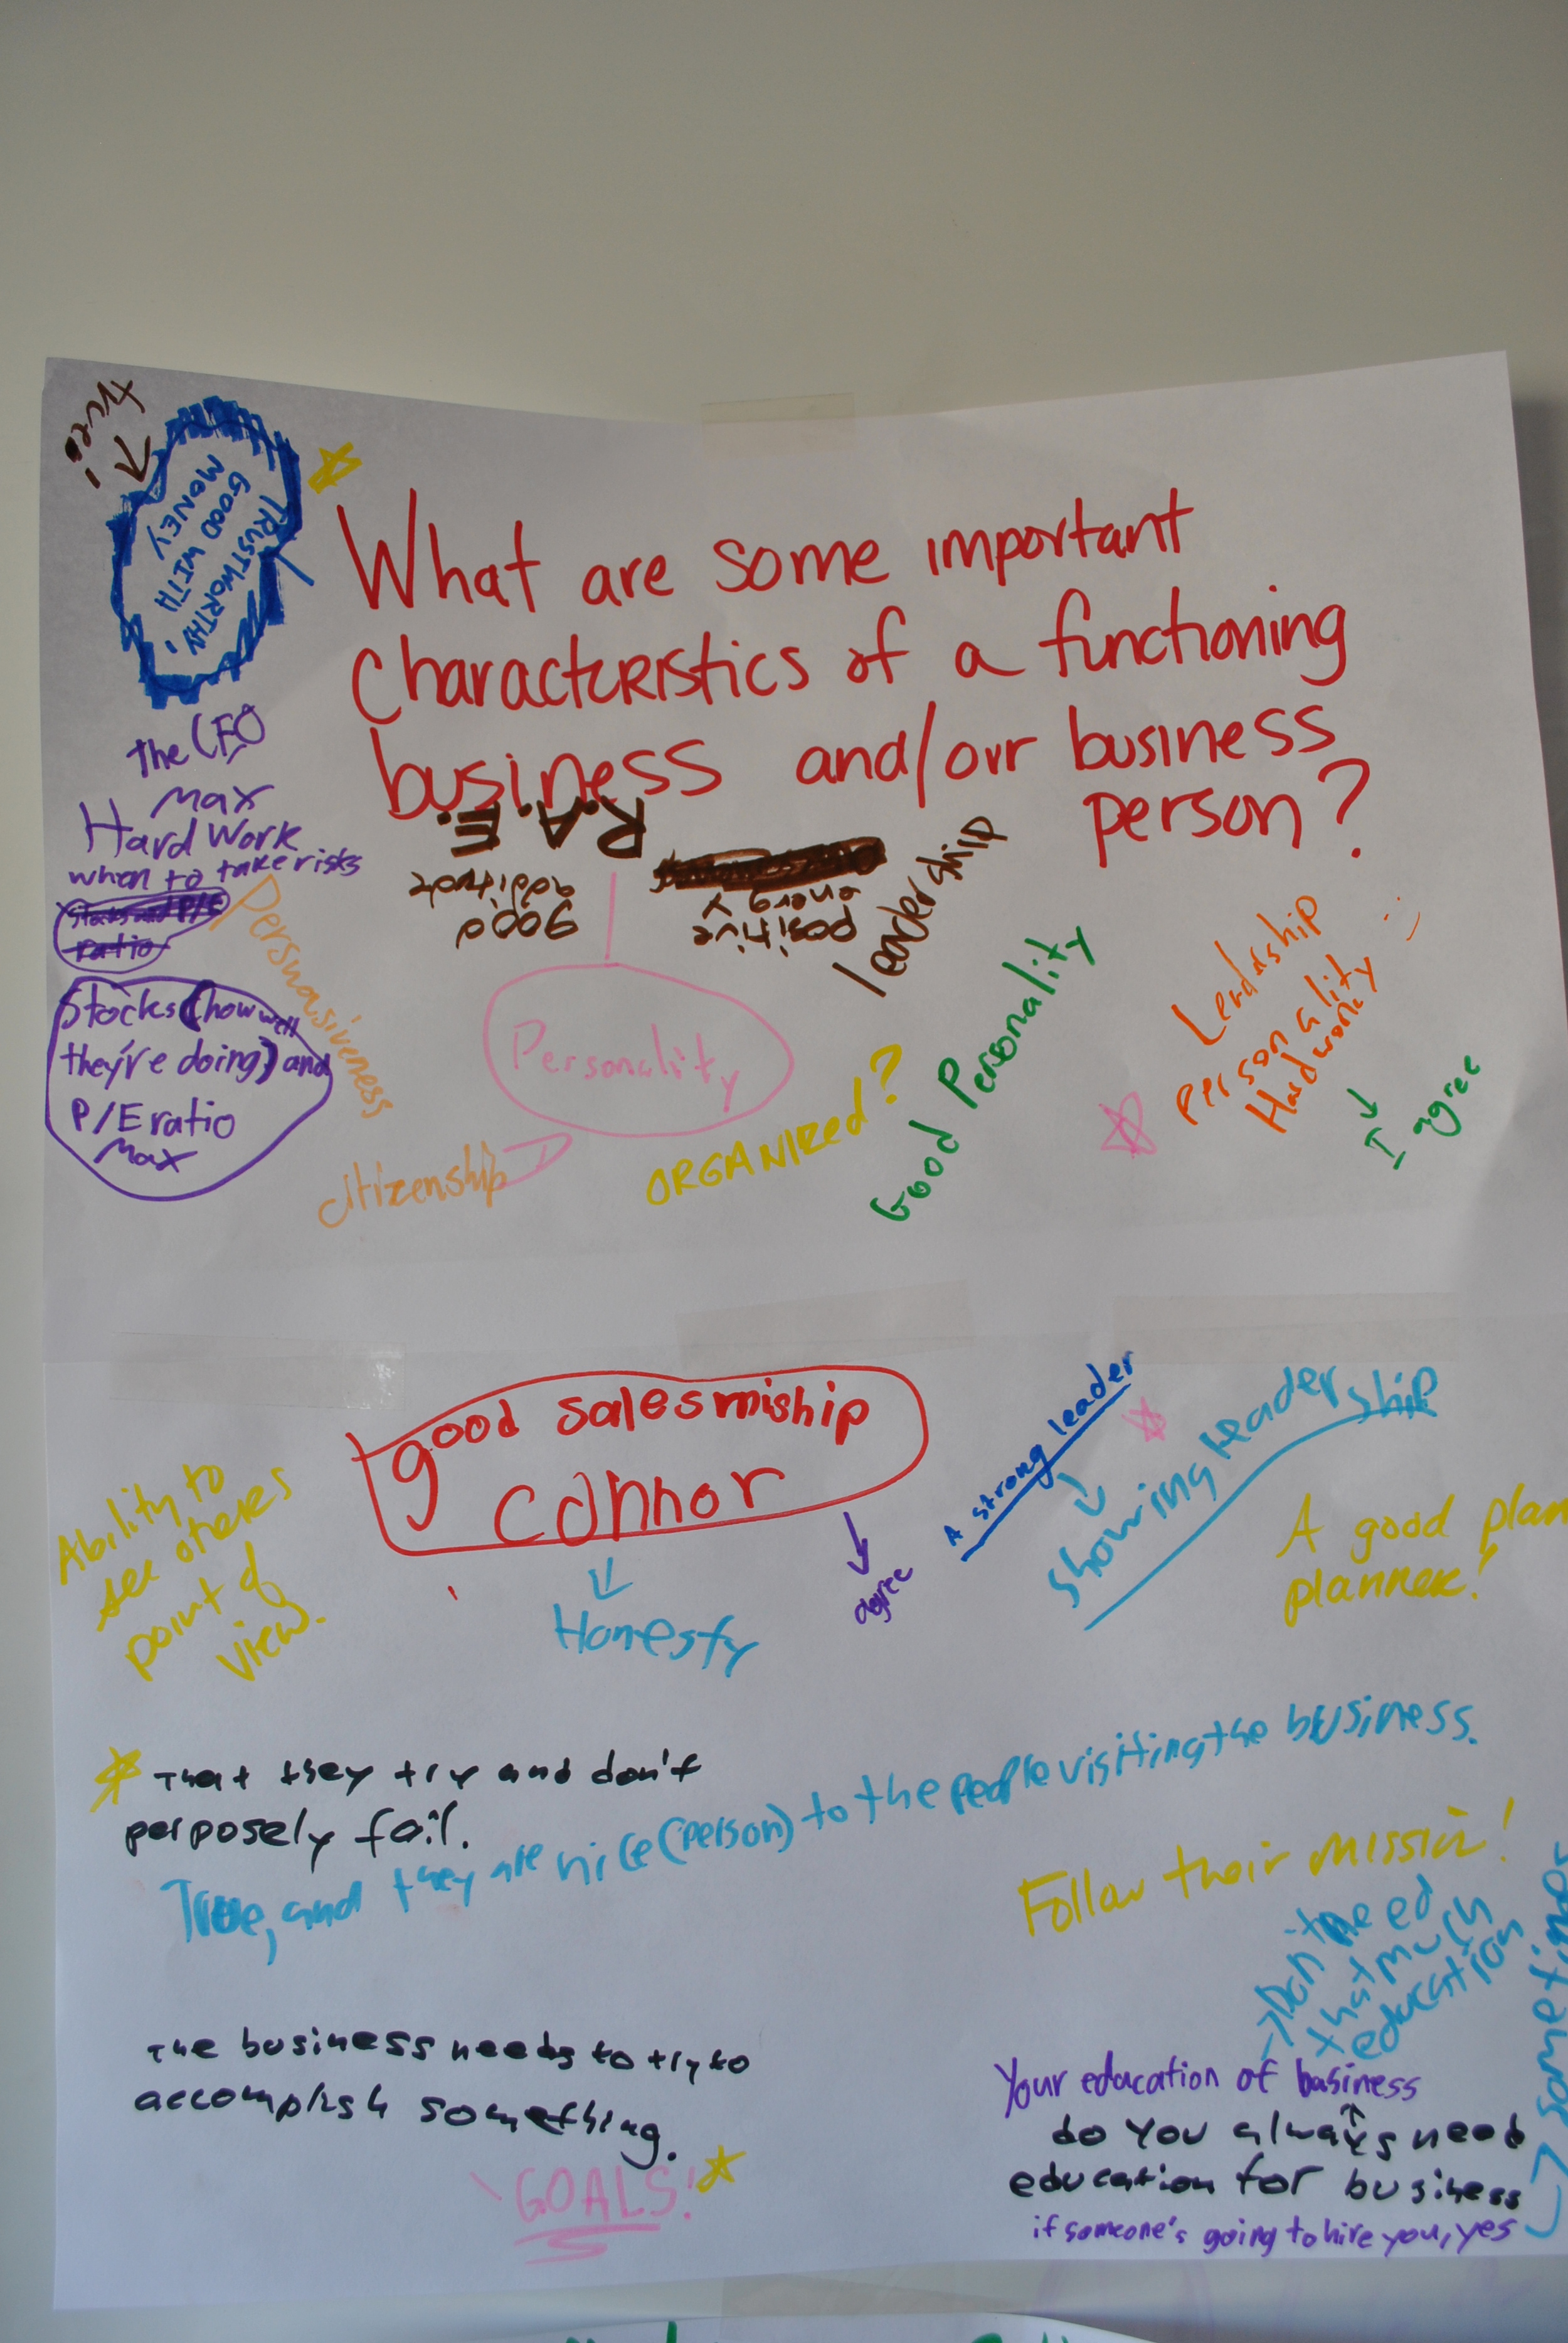 true!
TRUSTWORTHY!
GOOD WITH
MONEY
What are some important
characteristics of a functioning
business and/orr business
person?
the CFO
Max
Hard work
when to take risks
ratio
Stocks (how well
they're doing) and
P/E ratio
Max
Persuasiveness
R.A.E.
good
additude
positive
energy
leadership
Personality
citizenship
ORGANIZED?
Good Personality
Leadership
personality
Hard work
:)
I agree
good salesmiship
connor
Honesty
agree
A strong leader
showing leadership
A good plan
planner!
Ability to
see others
point of
view.
That they try and don't
perposely fail.
True, and they are nice (person) to the people visiting the business.
Follow their mission!
Don't need
that much
education
sometimes
The business needs to try to
accomplish something.
GOALS!
Your education of business
do you always need
education for business
if someone's going to hire you, yes